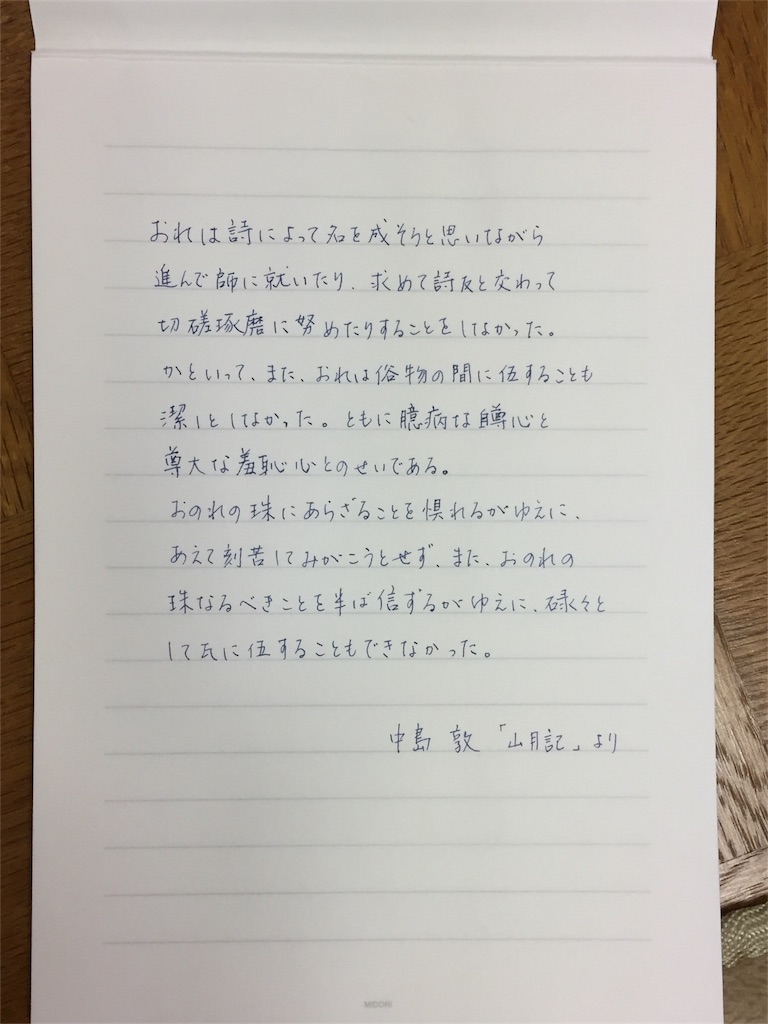 おれは詩によって名を成そうと思いながら
進んで師に就いたり、求めて詩友と交わって
切磋琢磨に努めたりすることをしなかった。
かといって、また、おれは俗物の間に伍することも
潔しとしなかった。ともに臆病な自尊心と
尊大な羞恥心とのせいである。
おのれの珠にあらざることを惧れるがゆえに、
あえて刻苦してみがこうとせず、また、おのれの
珠なるべきことを半ば信ずるがゆえに、碌々と
して瓦に伍することもできなかった。
中島 敦 「山月記」より
MIDORI